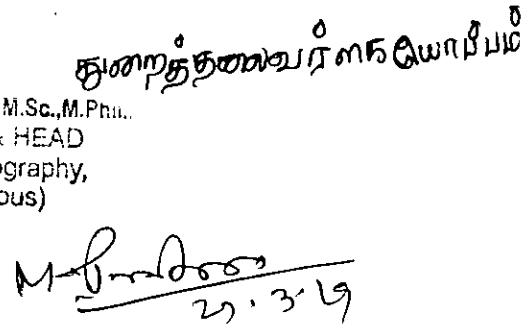 துறைத்தலைவர் கையொப்பம்
M.Sc.,M.Phil.,
& HEAD
ography,
ous)